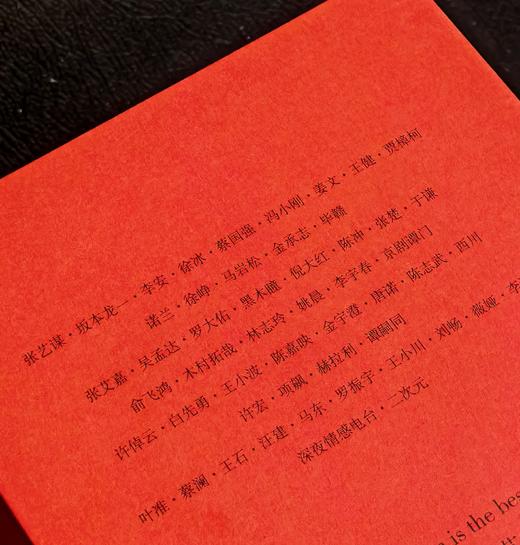 张艺谋·坂本龙一·李安·徐冰·蔡国强·冯小刚·姜文·王健·贾樟柯
诺兰·徐峥·马岩松·金承志·毕赣
张艾嘉·吴孟达·罗大佑·黑木瞳·倪大红·陈冲·张楚·于谦
俞飞鸿·木村拓哉·林志玲·姚晨·李宇春·京剧谭门
许倬云·白先勇·王小波·陈嘉映·金宇澄·唐诺·陈志武·西川
许宏·项飙·赫拉利·谭嗣同
叶准·蔡澜·王石·汪建·马东·罗振宇·王小川·刘畅·薇娅·李
深夜情感电台·二次元
is the bes